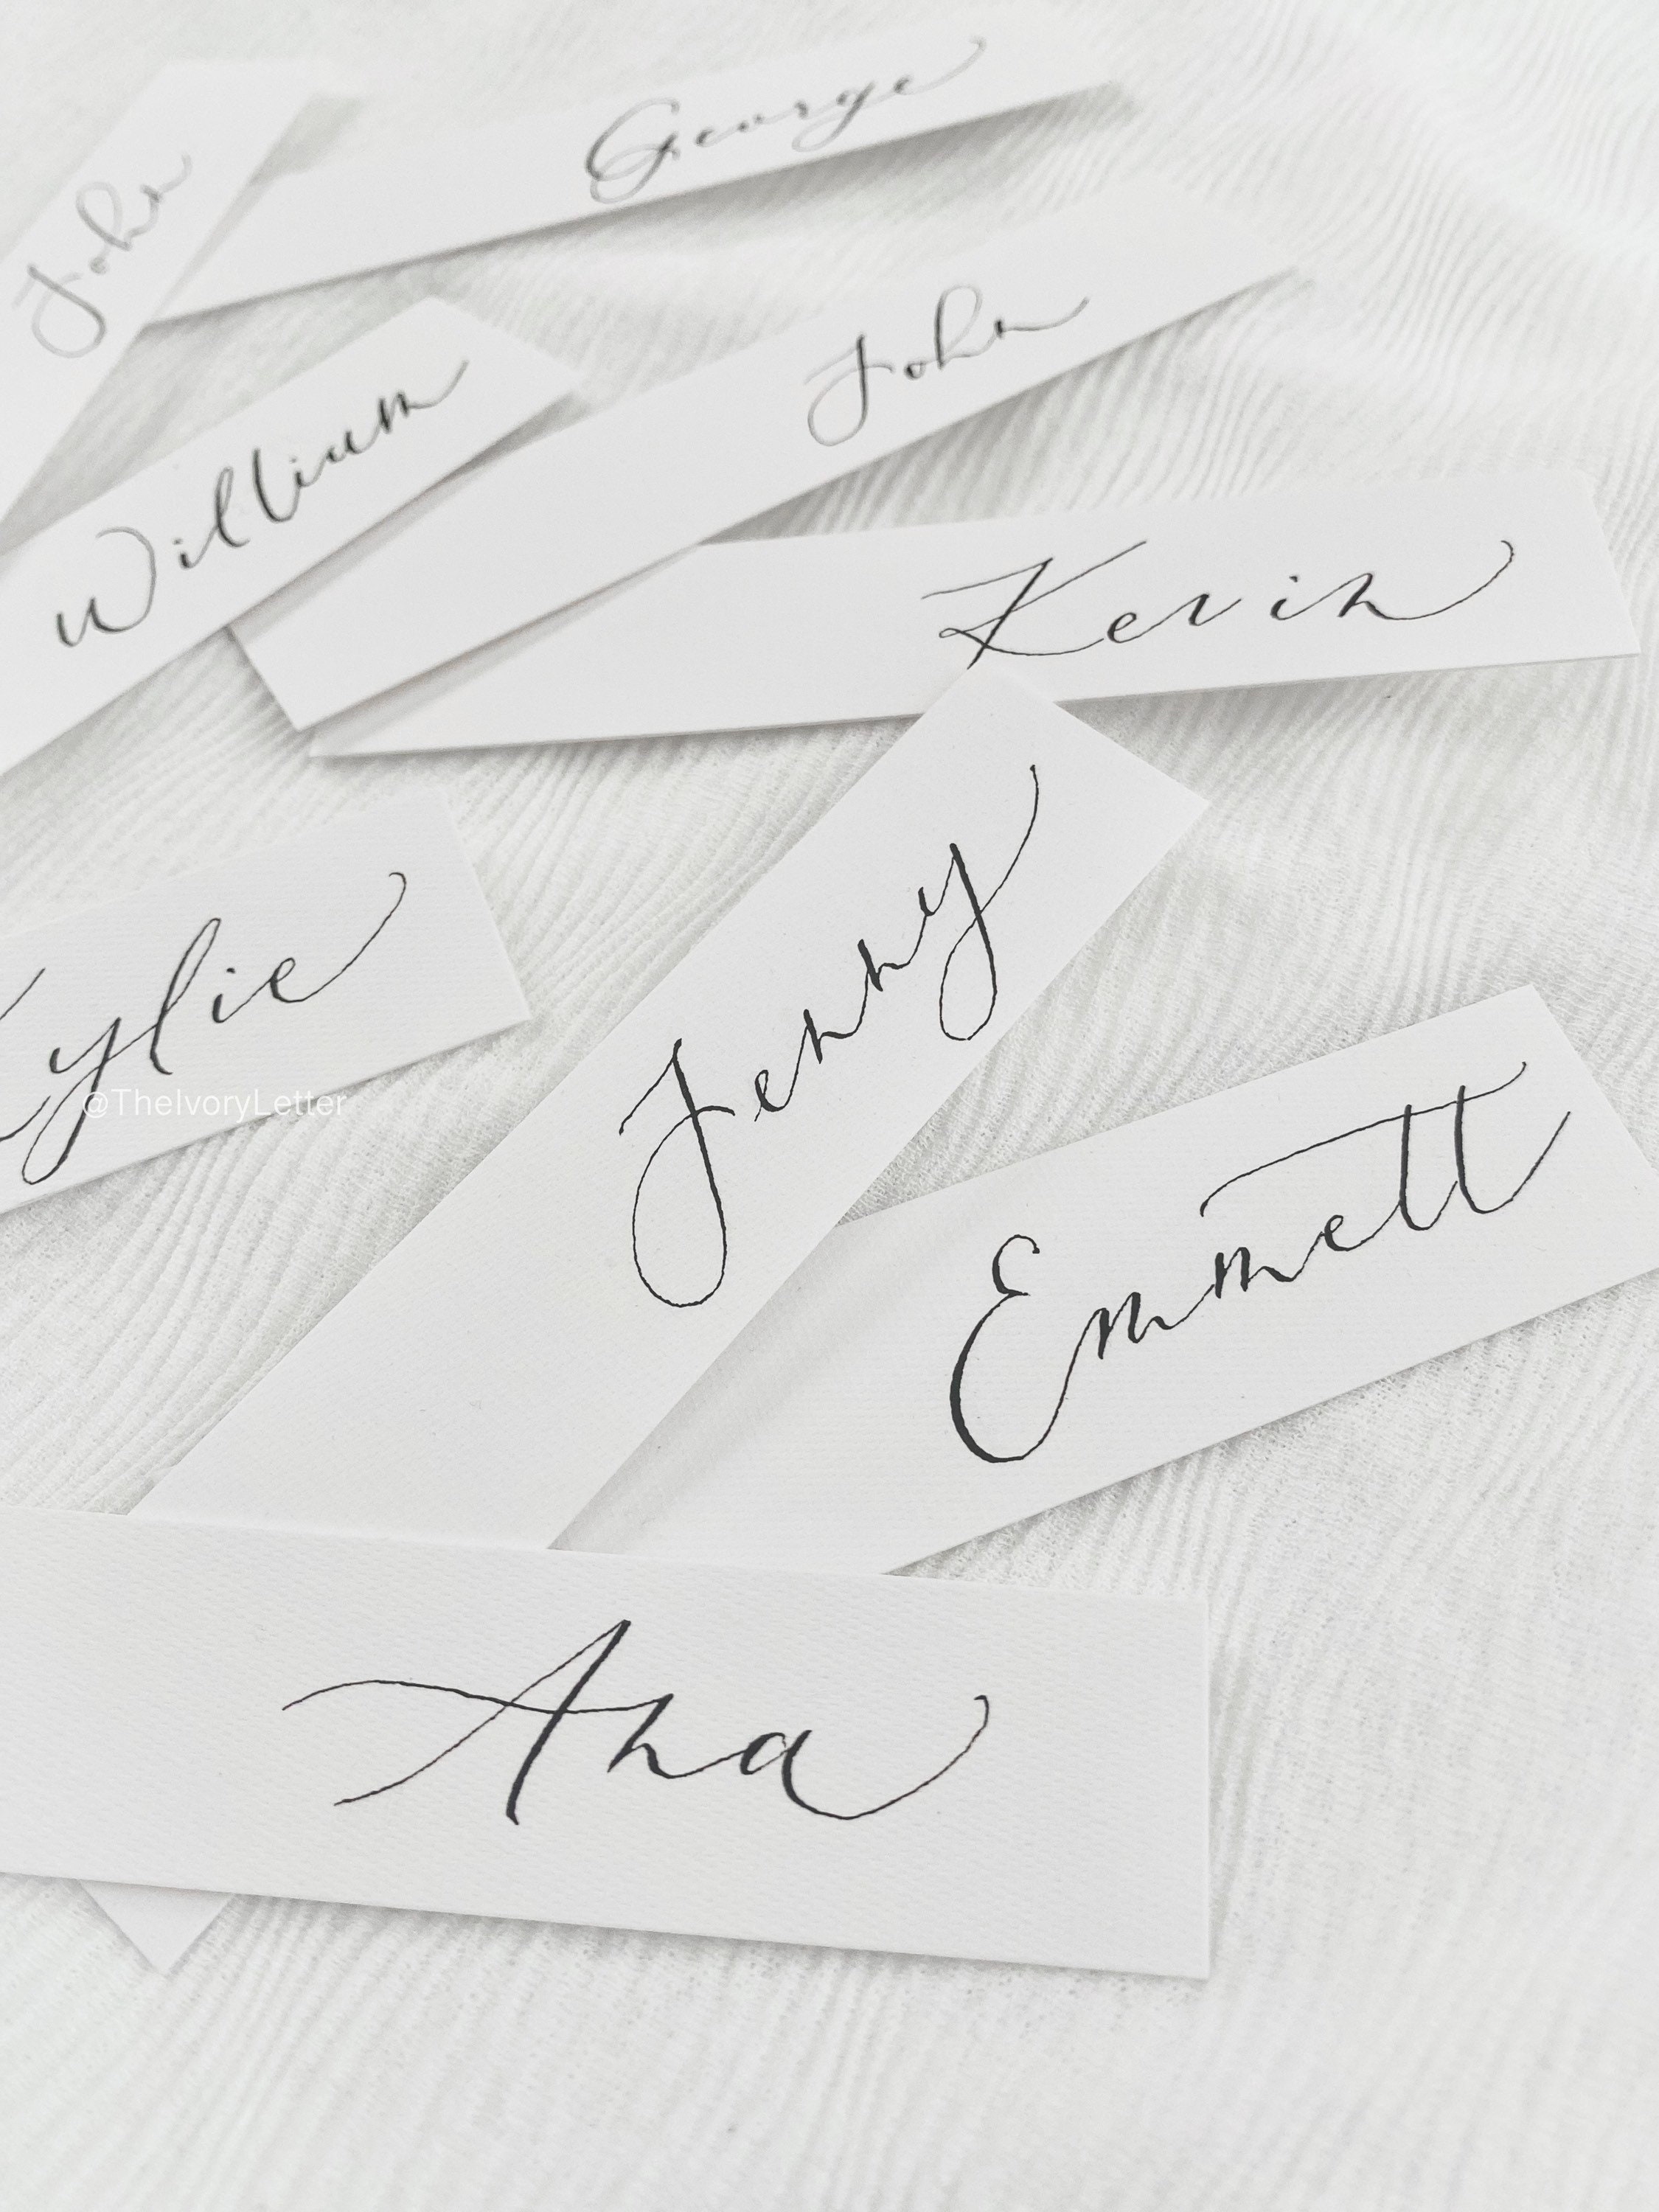 George
John
John
William
Kevin
Kylie
Jenny
@TheIvoryLetter
Emmett
Ana